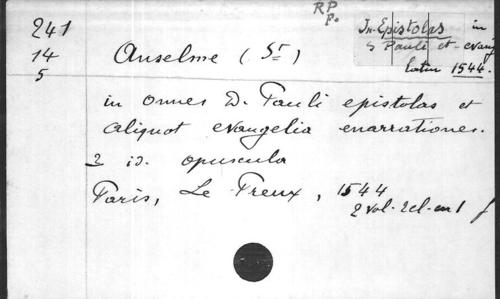 241
14
5
RP
p.
In Epistolas in
S Pauli et evang
latin 1544.
Anselme (St)
in omnes D. Pauli epistolas et
aliquot evangelia enarrationes.
2 id. opuscula
Paris, Le Preux, 1544
2 vol. rel. en 1 f